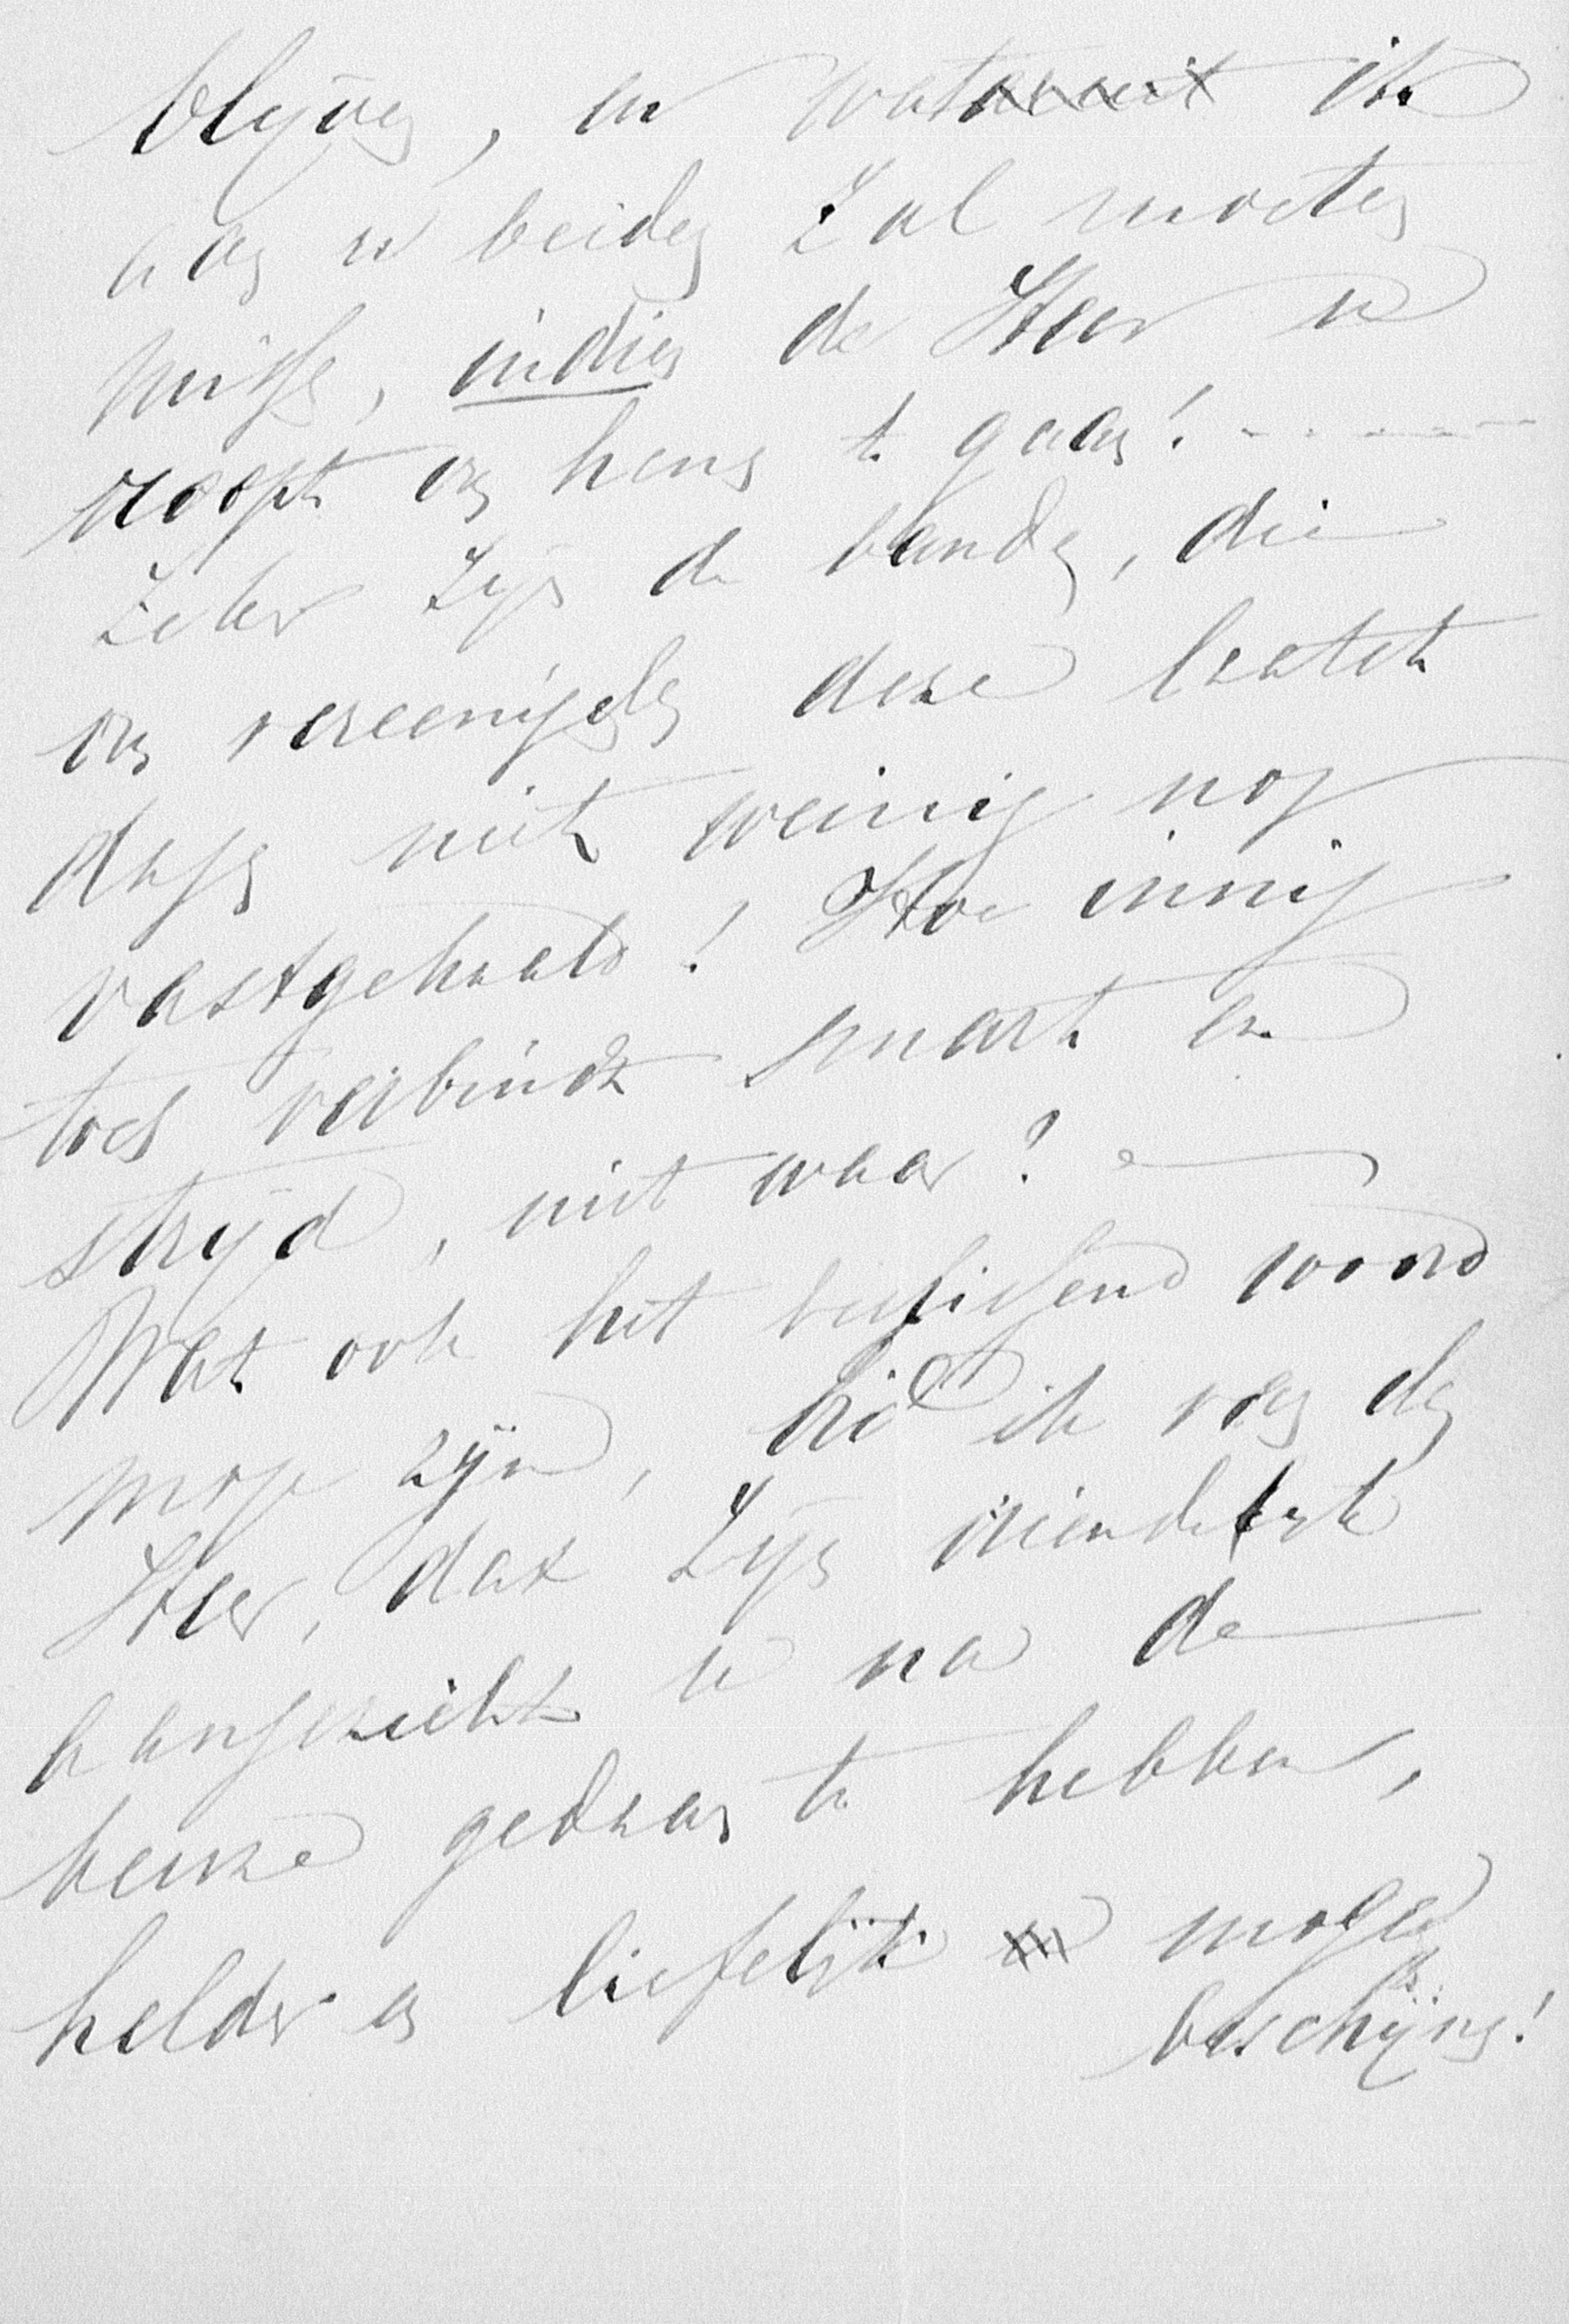 blijven, en wat ik
aan u beiden zal moeten
missen, indien de Heer u
roept om heen te gaan! - - - - -
Zeker zijn de banden, die
ons vereenigden deze laatste
dagen niet weinig nog
vastgehaald! Hoe innig
toch verbindt smart en
strijd, niet waar? —
Wat ook het beslissend woord
moge zijn, bid ik van den
Heer, dat Zijn vriendelijk
aangezicht u na de
keuze gedaan te hebben,
helder en liefelijk moge
beschijnen!